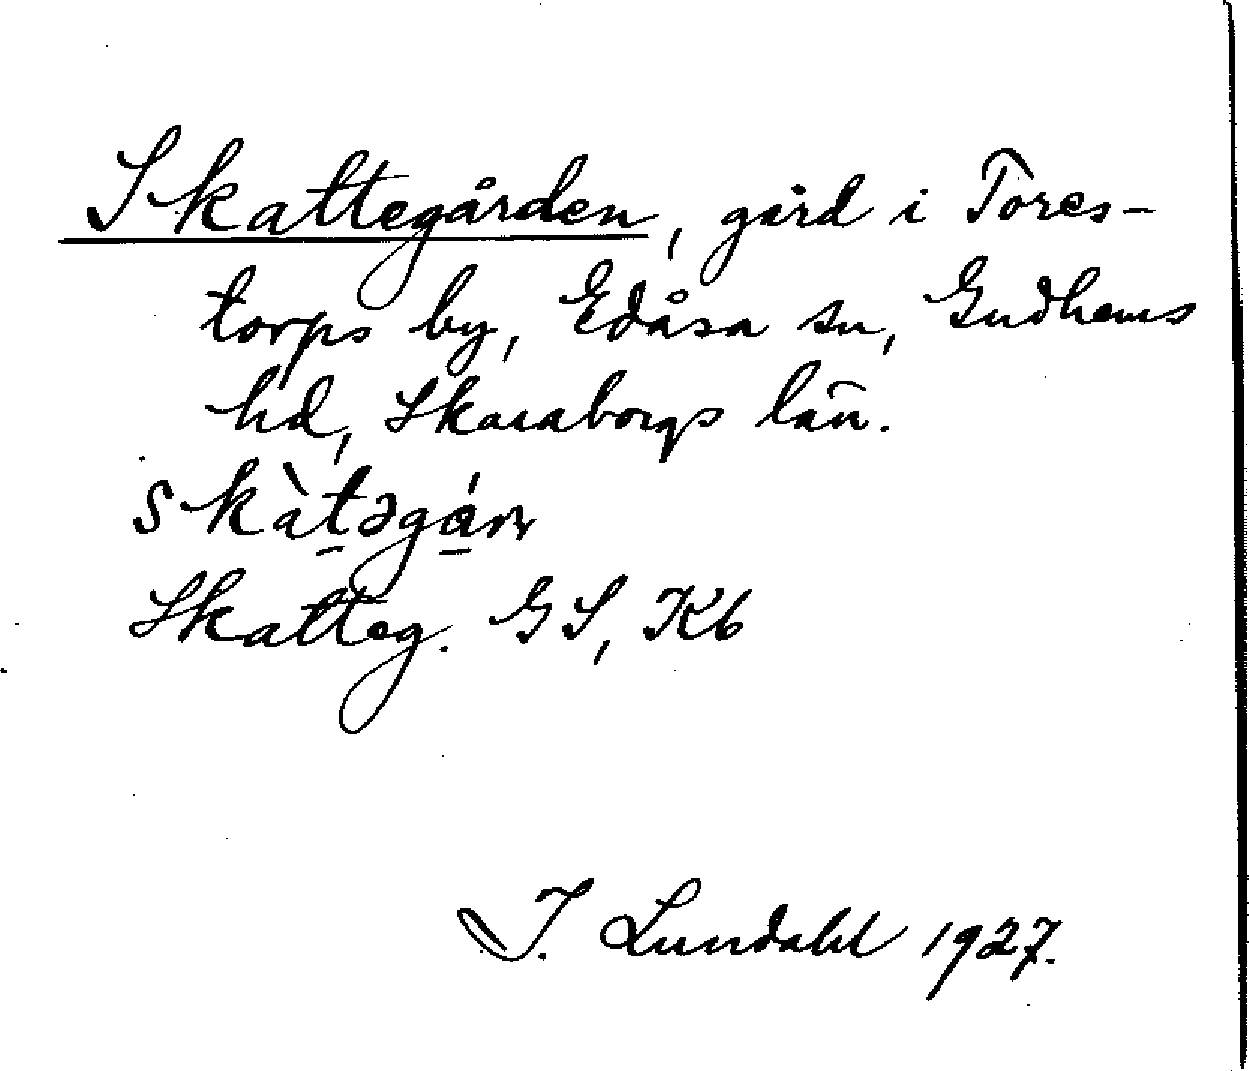 Skattegården, gård i Tores-
torps by, Edåsa sn, Gudhems
hd, Skaraborgs län.
skàt̠əgá̠ɳ
Skatteg. GS, Kb
I. Lundahl 1927.